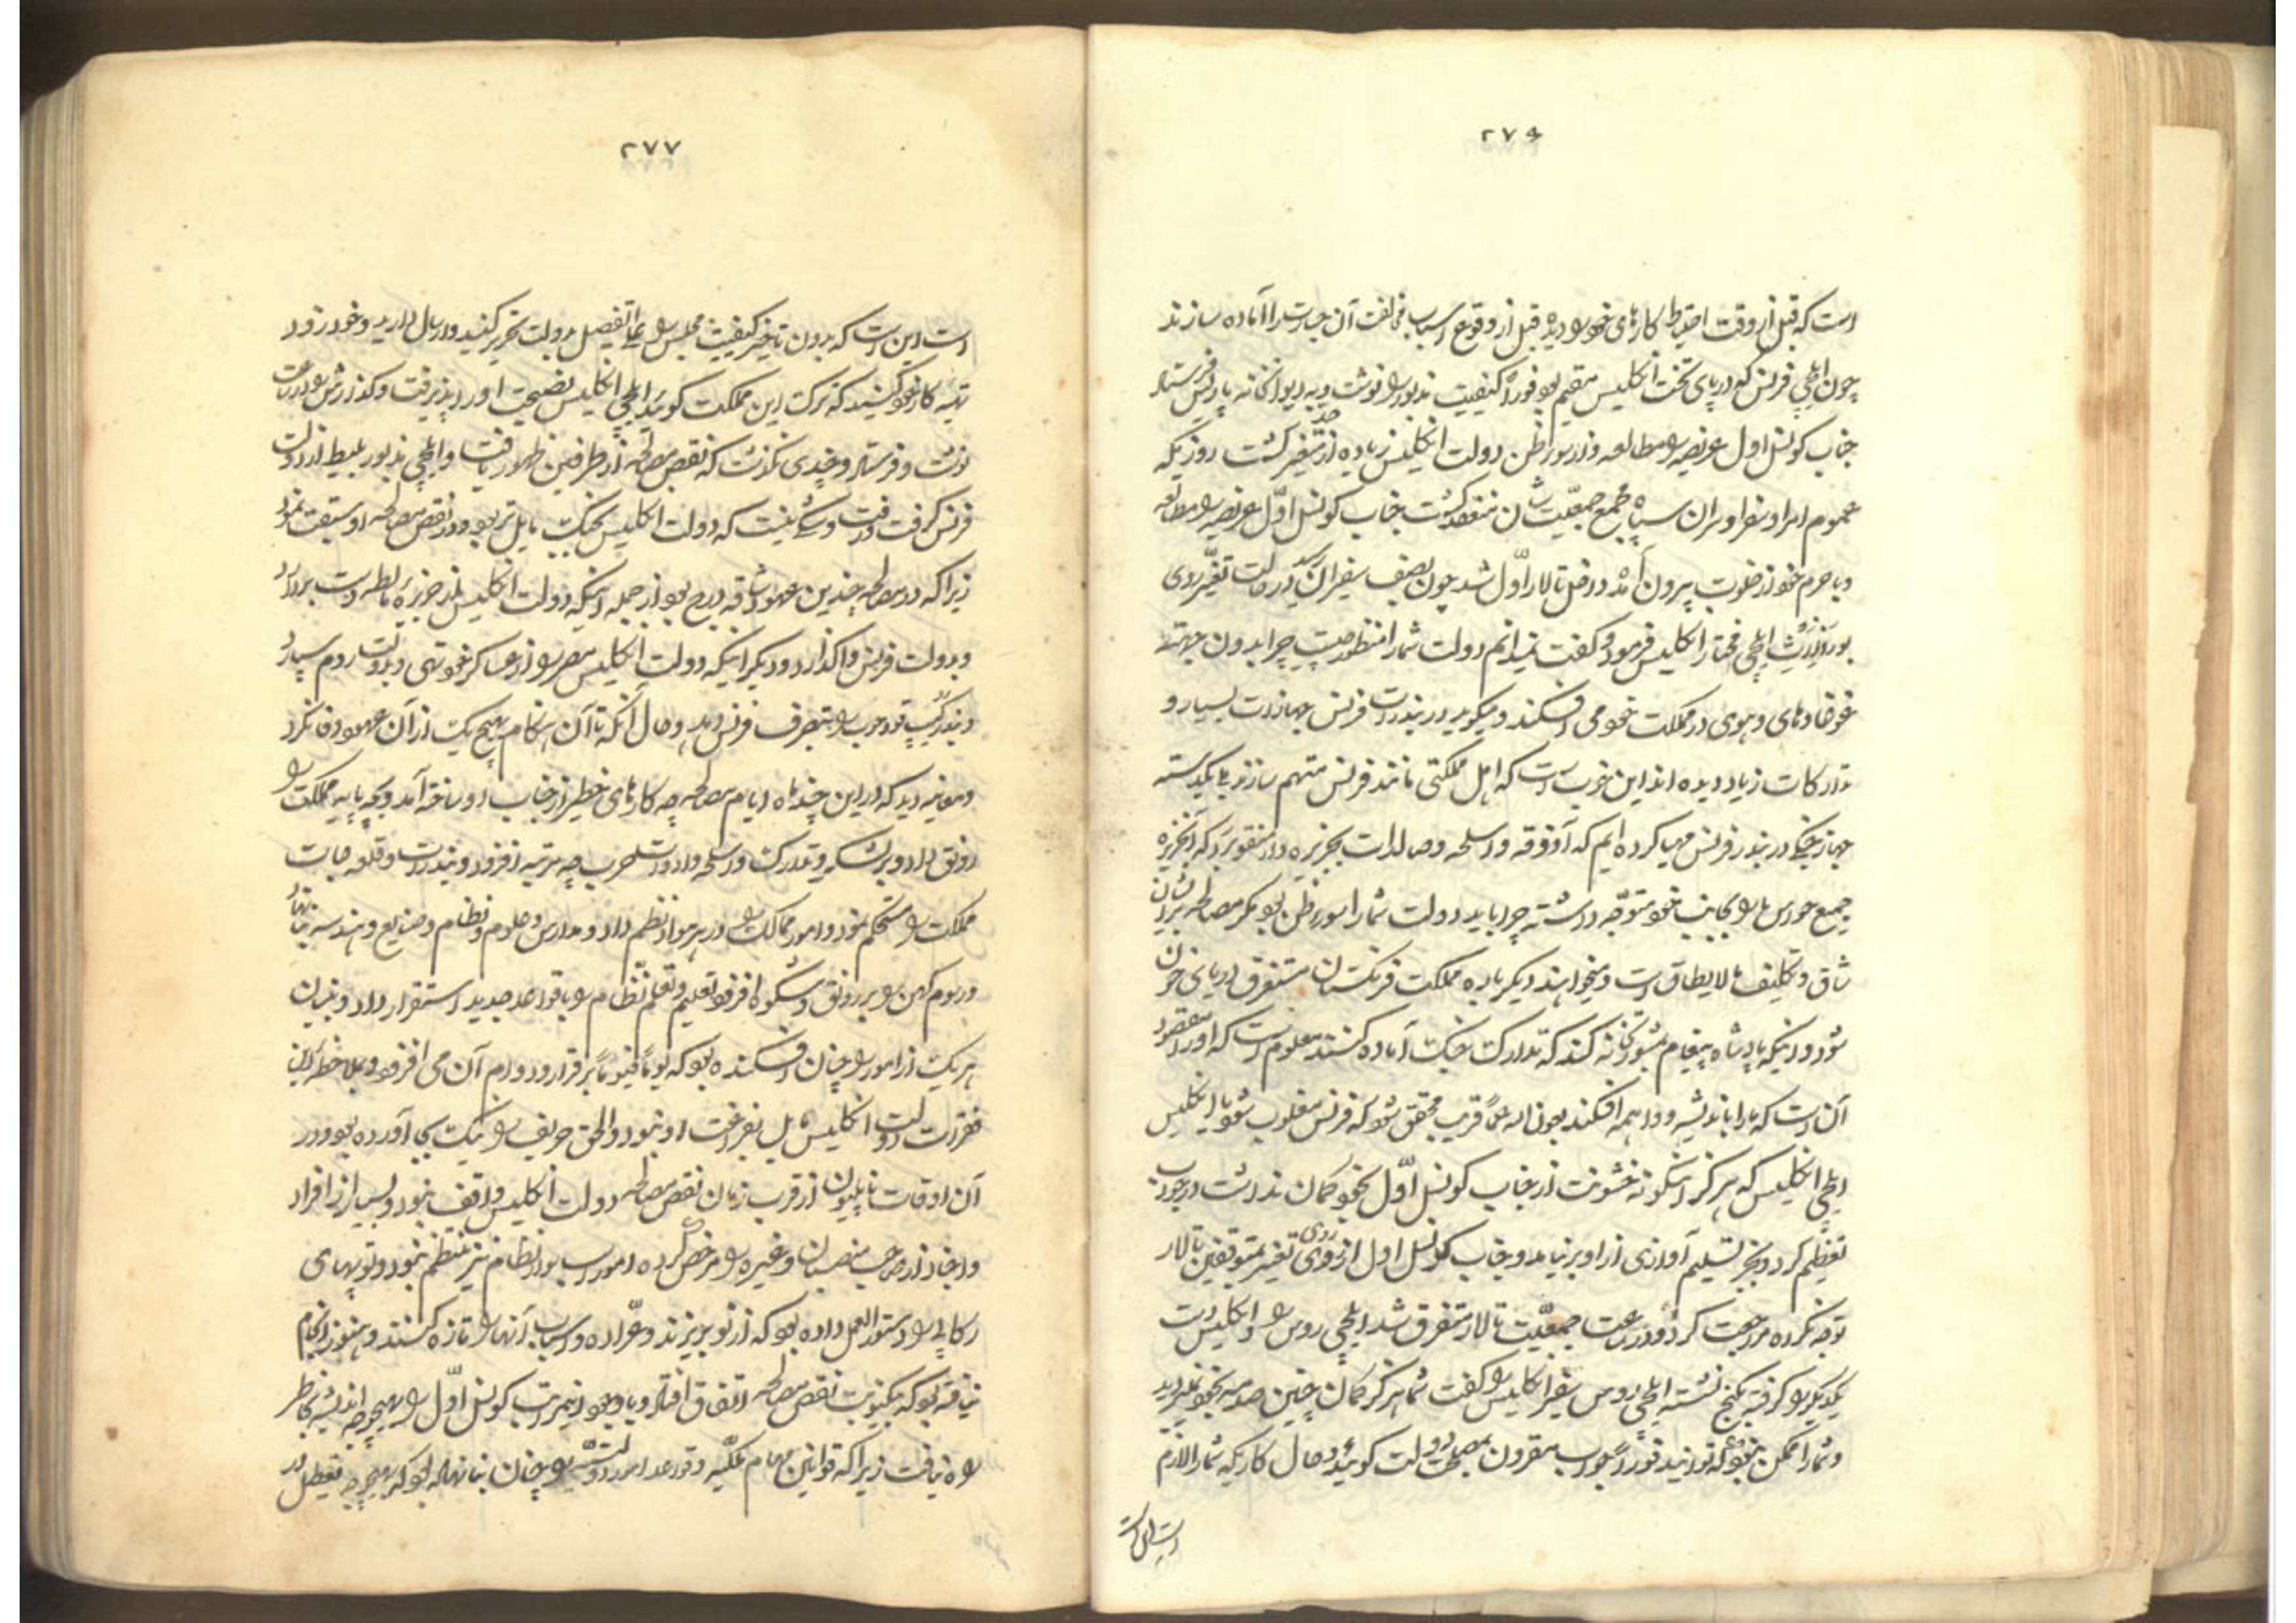 ۲۷۶
است که قبل از وقت احتیاط کارهای خود را دیده قبل از وقوع اسباب مخالفت آن جسارت را آماده سازند
چون ایلچی فرنس که در پای تخت انگلیس مقیم بود فوراً کیفیت مذبور را نوشت و به دیوانخانه پاریس فرستاد
جناب کونسل اول عریضه را مطالعه و از سوء ظن دولت انگلیس زیاده از حد متغیر گشت روزیکه
عموم امرا و سفرا و سران سپاه مجمع جمعیت شان منعقد گشت جناب کونسل اول عریضه را مطالعه
و با حرم خود از خلوت بیرون آمد و داخل تالار اول شد چون بصف سفیران رسید در حالت تغیر روی
ایلچی مختار انگلیس فرمود و گفت نمیدانم دولت شما را منظور چیست چرا بدون جهت
غوغا و های و هوی در مملکت خود می افکند و میگوید در بندرات فرنس جهازات بسیار و
تدارکات زیاد دیده اند این خوب است که اهل مملکتی مانند فرنس متهم سازند ما یکدسته
جهاز جنگی در بندر فرنس مهیا کرده ایم که آذوقه و اسلحه و صالدات بجزیره برد که آنجزیره
جمیع حواس ما را بجانب خود متوجه داشته چرا باید دولت شما را سوء ظن بود مگر مصالحه بر ایشان
شاق و تکلیف مالایطاق است و میخواهند دیگر باره مملکت فرنگستان مستغرق دریای خون
شود و اینکه پادشاه پیغام بمشورتخانه کند که تدارک جنگ آماده کنند معلوم است که او را مقصود
آن است که ما را باندیشه و واهمه افکند بعون اله عما قریب محقق شود که فرنس مغلوب شود یا انگلیس
ایلچی انگلیس که هرگز اینگونه خشونت از جناب کونسل اول بخود گمان نداشت در جواب
تعظیم کرد و بجز تسلیم آوازی از او بر نیامد و جناب کونسل اول از روی تغیر بمتوقفین تالار
توجه نکرده مراجعت کرد و در ساعت جمعیت تالار متفرق شد ایلچی روس و انگلیس دست
یکدیگر را گرفته بکنج نشسته ایلچی روس سفیر انگلیس را گفت شما هرگز گمان چنین صدمه بخود نمیدید
و شما را ممکن نبود که توانید فوراً جواب مقرون بمصلحت دولت گوئید و حال کاریکه شما را لازم
است این است
۲۷۷
است این است که بدون تاخیر کیفیت مجلس را بما تفصیل بدولت تحریر کنید و ارسال دارید و خود زود
تهیه کار خود کنید که ترک این مملکت گوئید ایلچی انگلیس نصیحت او را پذیرفت و گذارش را در ساعت
نوشت و فرستاد و چندی نگذشت که نقص مصالحه از طرفین ظهور یافت و ایلچی مذبور بلیط از دولت
فرنس گرفت و رفت و شکی نیست که دولت انگلیس بجنگ مایل تر بود و در نقص مصالحه او سبقت نمود
زیرا که در مصالحه چندین عهود شاقه درج بود از جمله اینکه دولت انگلیس از جزیره مالطه دست بردارد
و بدولت فرنس واگذارد و دیگر اینکه دولت انگلیس مصر را از عساکر خود تهی و بدولت روم سپارد
و بتصرف فرنس دهد و حال آنکه تا آن هنگام هیچ یک از آن عهود وفا نکرد
و معاینه دید که در این چند ماه ایام مصالحه چه کارهای خطیر از جناب او ساخته آمد و بچه پایه مملکت را
رونق داد و بر لشکر و تدارک و اسلحه و ادوات حرب چه مرتبه افزود و بندرات و قلعه جات
مملکت را مستحکم نمود و امور ممالک را در هر مواد نظم داد و مدارس و علوم و نظام و صنایع و هندسه بنا نهاد
و رسوم کهن را بر رونق و شکوه افزود و تعلیم و تعلم نظام را با قواعد جدید استقرار داد و بنیان
هر یک از امور را چنان افکنده بود که یوماً فیوماً برقرار و دوام آن می افزود و بملاحظه این
فقرات دولت انگلیس مایل بفراغت او نبود و الحق حریف را نیک بجا آورده بود و در
آن اوقات ناپلیون از قرب زمان نقص مصالحه دولت انگلیس واقف نبود و بسیار از افراد
و اجناد از صاحب منصبان و غیره را مرخص کرده امور سوار نظام نیز منتظم نبود و توپهای
رکابی را دستور العمل داده بود که از نو بریزند و عراده و اسباب آنها را تازه کنند و هنوز انجام
نیافته بود که بیکنوبت نقص مصالحه اتفاق افتاد و با وجود اینمراتب کونسل اول را بهیچوجه اندیشه بخاطر
راه نیافت زیرا که قوانین مهام ملکیه و قواعد امور دولتیه را چنان بنا نهاده بود که بهیچوجه تعطیل در